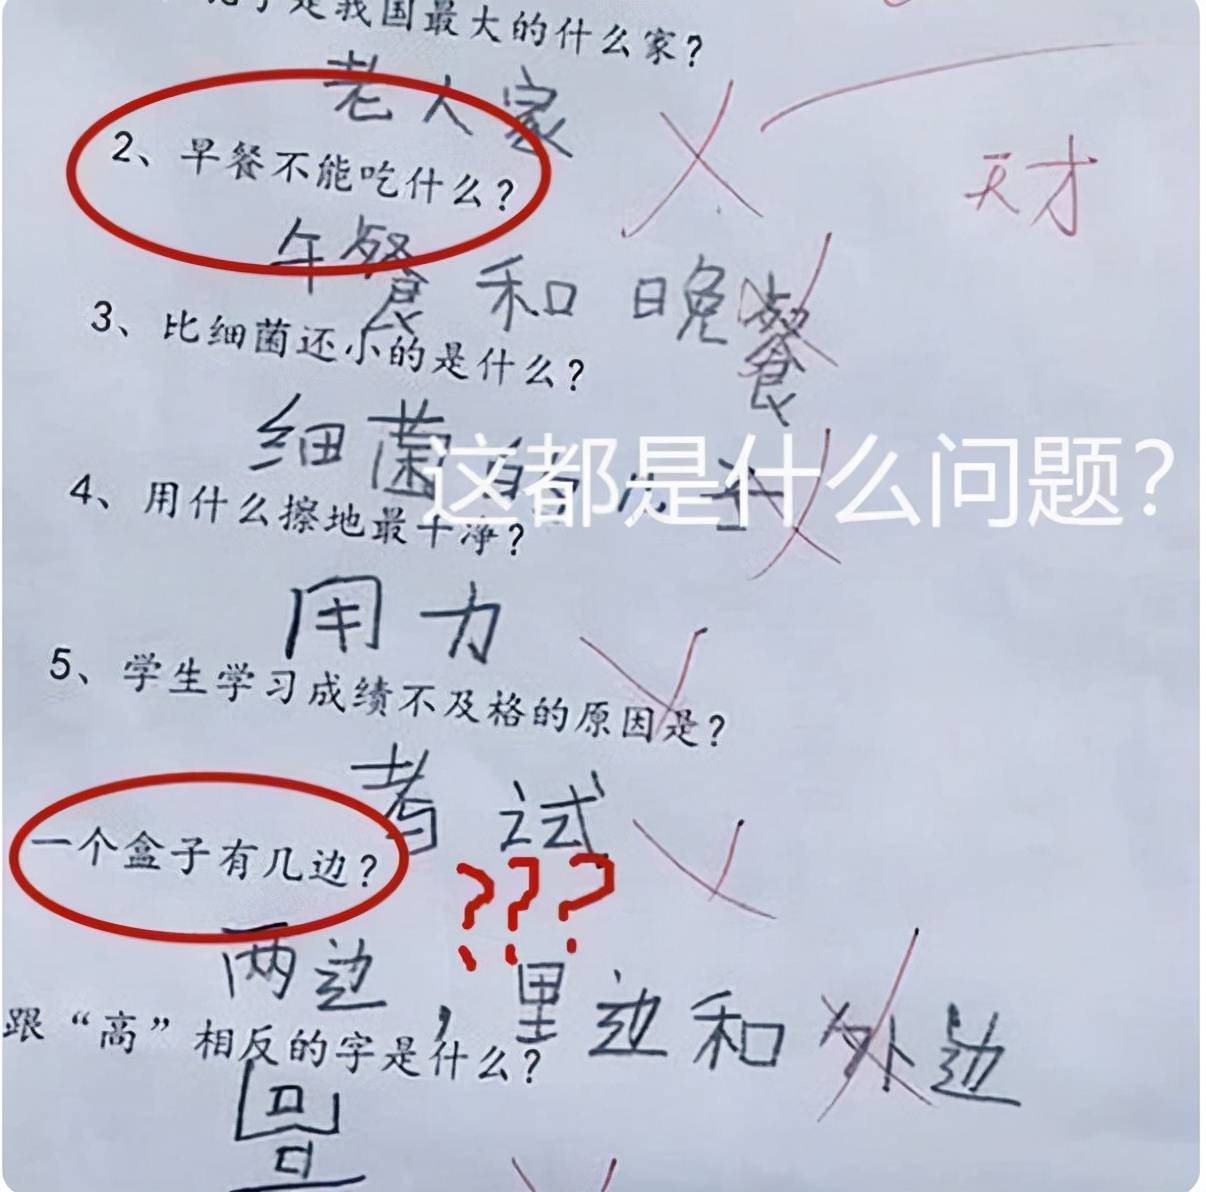 是我国最大的什么家？
老人家
天才
2、早餐不能吃什么？
午餐和晚餐
3、比细菌还小的是什么？
细菌的儿子
这都是什么问题？
4、用什么擦地最干净？
用力
5、学生学习成绩不及格的原因是？
考试
一个盒子有几边？
？？？
两边，里边和外边
跟“高”相反的字是什么？